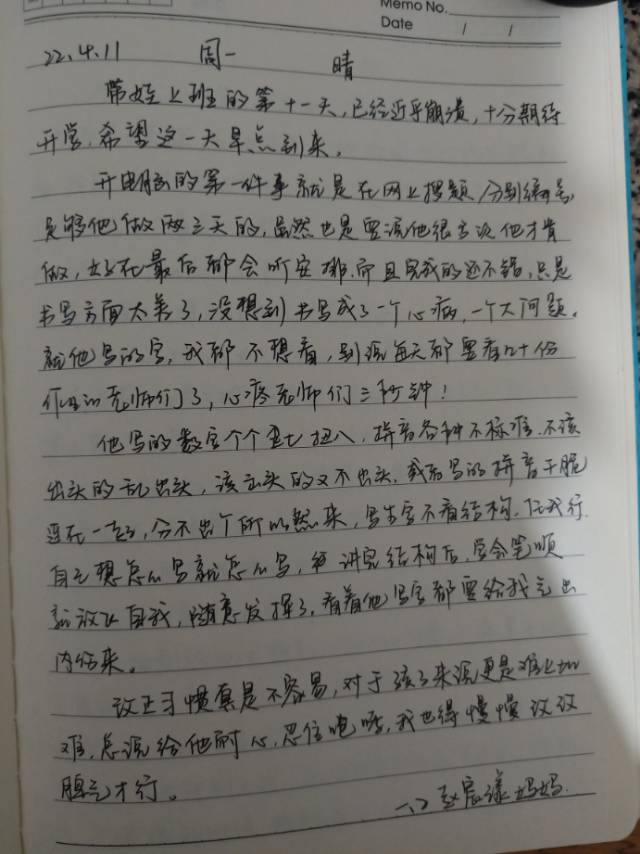 Memo No.
Date / /
22.4.11 周一 晴
带娃上班的第十一天,已经近乎崩溃,十分期待
开学,希望这一天早点到来。
开电脑的第一件事就是在网上搜题,分别编号,
足够他做两三天的,虽然也是要说他很多次他才肯
做,好在最后都会听安排,而且完成的还不错,只是
书写方面太差了,没想到书写成了一个心病,一个大问题。
就他写的字,我都不想看,别说每天都要看几十份
作业的老师们了,心疼老师们三秒钟!
他写的数字个个歪七扭八,拼音各种不标准,不该
出头的乱出头,该出头的又不出头,最后写的拼音干脆
连在一起,分不出个所以然来,写生字不看结构,任我行,
自己想怎么写就怎么写,讲完结构后,学会笔顺
就放飞自我,随意发挥了,看着他写字都要给我气出
内伤来。
改正习惯真是不容易,对于孩子来说更是难上加
难,总说给他耐心,忍住咆哮,我也得慢慢改改
脾气才行。
赵宸漾妈妈